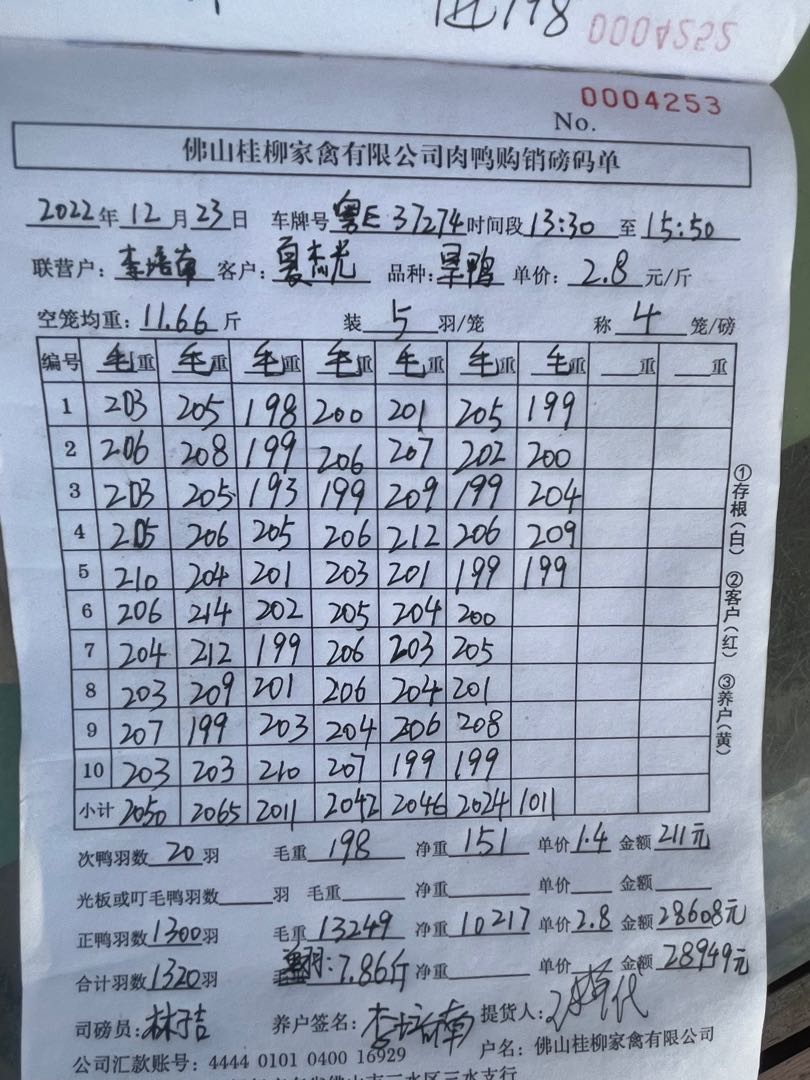 进198 0004252
0004253
No.
佛山桂柳家禽有限公司肉鸭购销磅码单
2022年12月23日 车牌号粤E 37274时间段13:30至15:50
联营户:李培南 客户:夏杰光 品种:旱鸭 单价:2.8元/斤
空笼均重:11.66斤 装5羽/笼 称4笼/磅
编号 毛重 毛重 毛重 毛重 毛重 毛重 毛重 重 重
1 203 205 198 200 201 205 199
2 206 208 199 206 207 202 200
3 203 205 193 199 209 199 204
4 205 206 205 206 212 206 209
5 210 204 201 203 201 199 199
6 206 214 202 205 204 200
7 204 212 199 206 203 205
8 203 209 201 206 204 201
9 207 199 203 204 206 208
10 203 203 210 207 199 199
小计 2050 2065 2011 2042 2046 2024 1011
①存根(白) ②客户(红) ③养户(黄)
次鸭羽数20羽 毛重198 净重151 单价1.4 金额211元
光板或叮毛鸭羽数 羽 毛重 净重 单价 金额
正鸭羽数1300羽 毛重13249 净重10217 单价2.8 金额28608元
合计羽数1320羽 羽:7.86斤 净重 单价 金额28949元
司磅员:林子吉 养户签名:李培南 提货人:
公司汇款账号:4444 0101 0400 16929 户名:佛山桂柳家禽有限公司
佛山市三水区三水支行